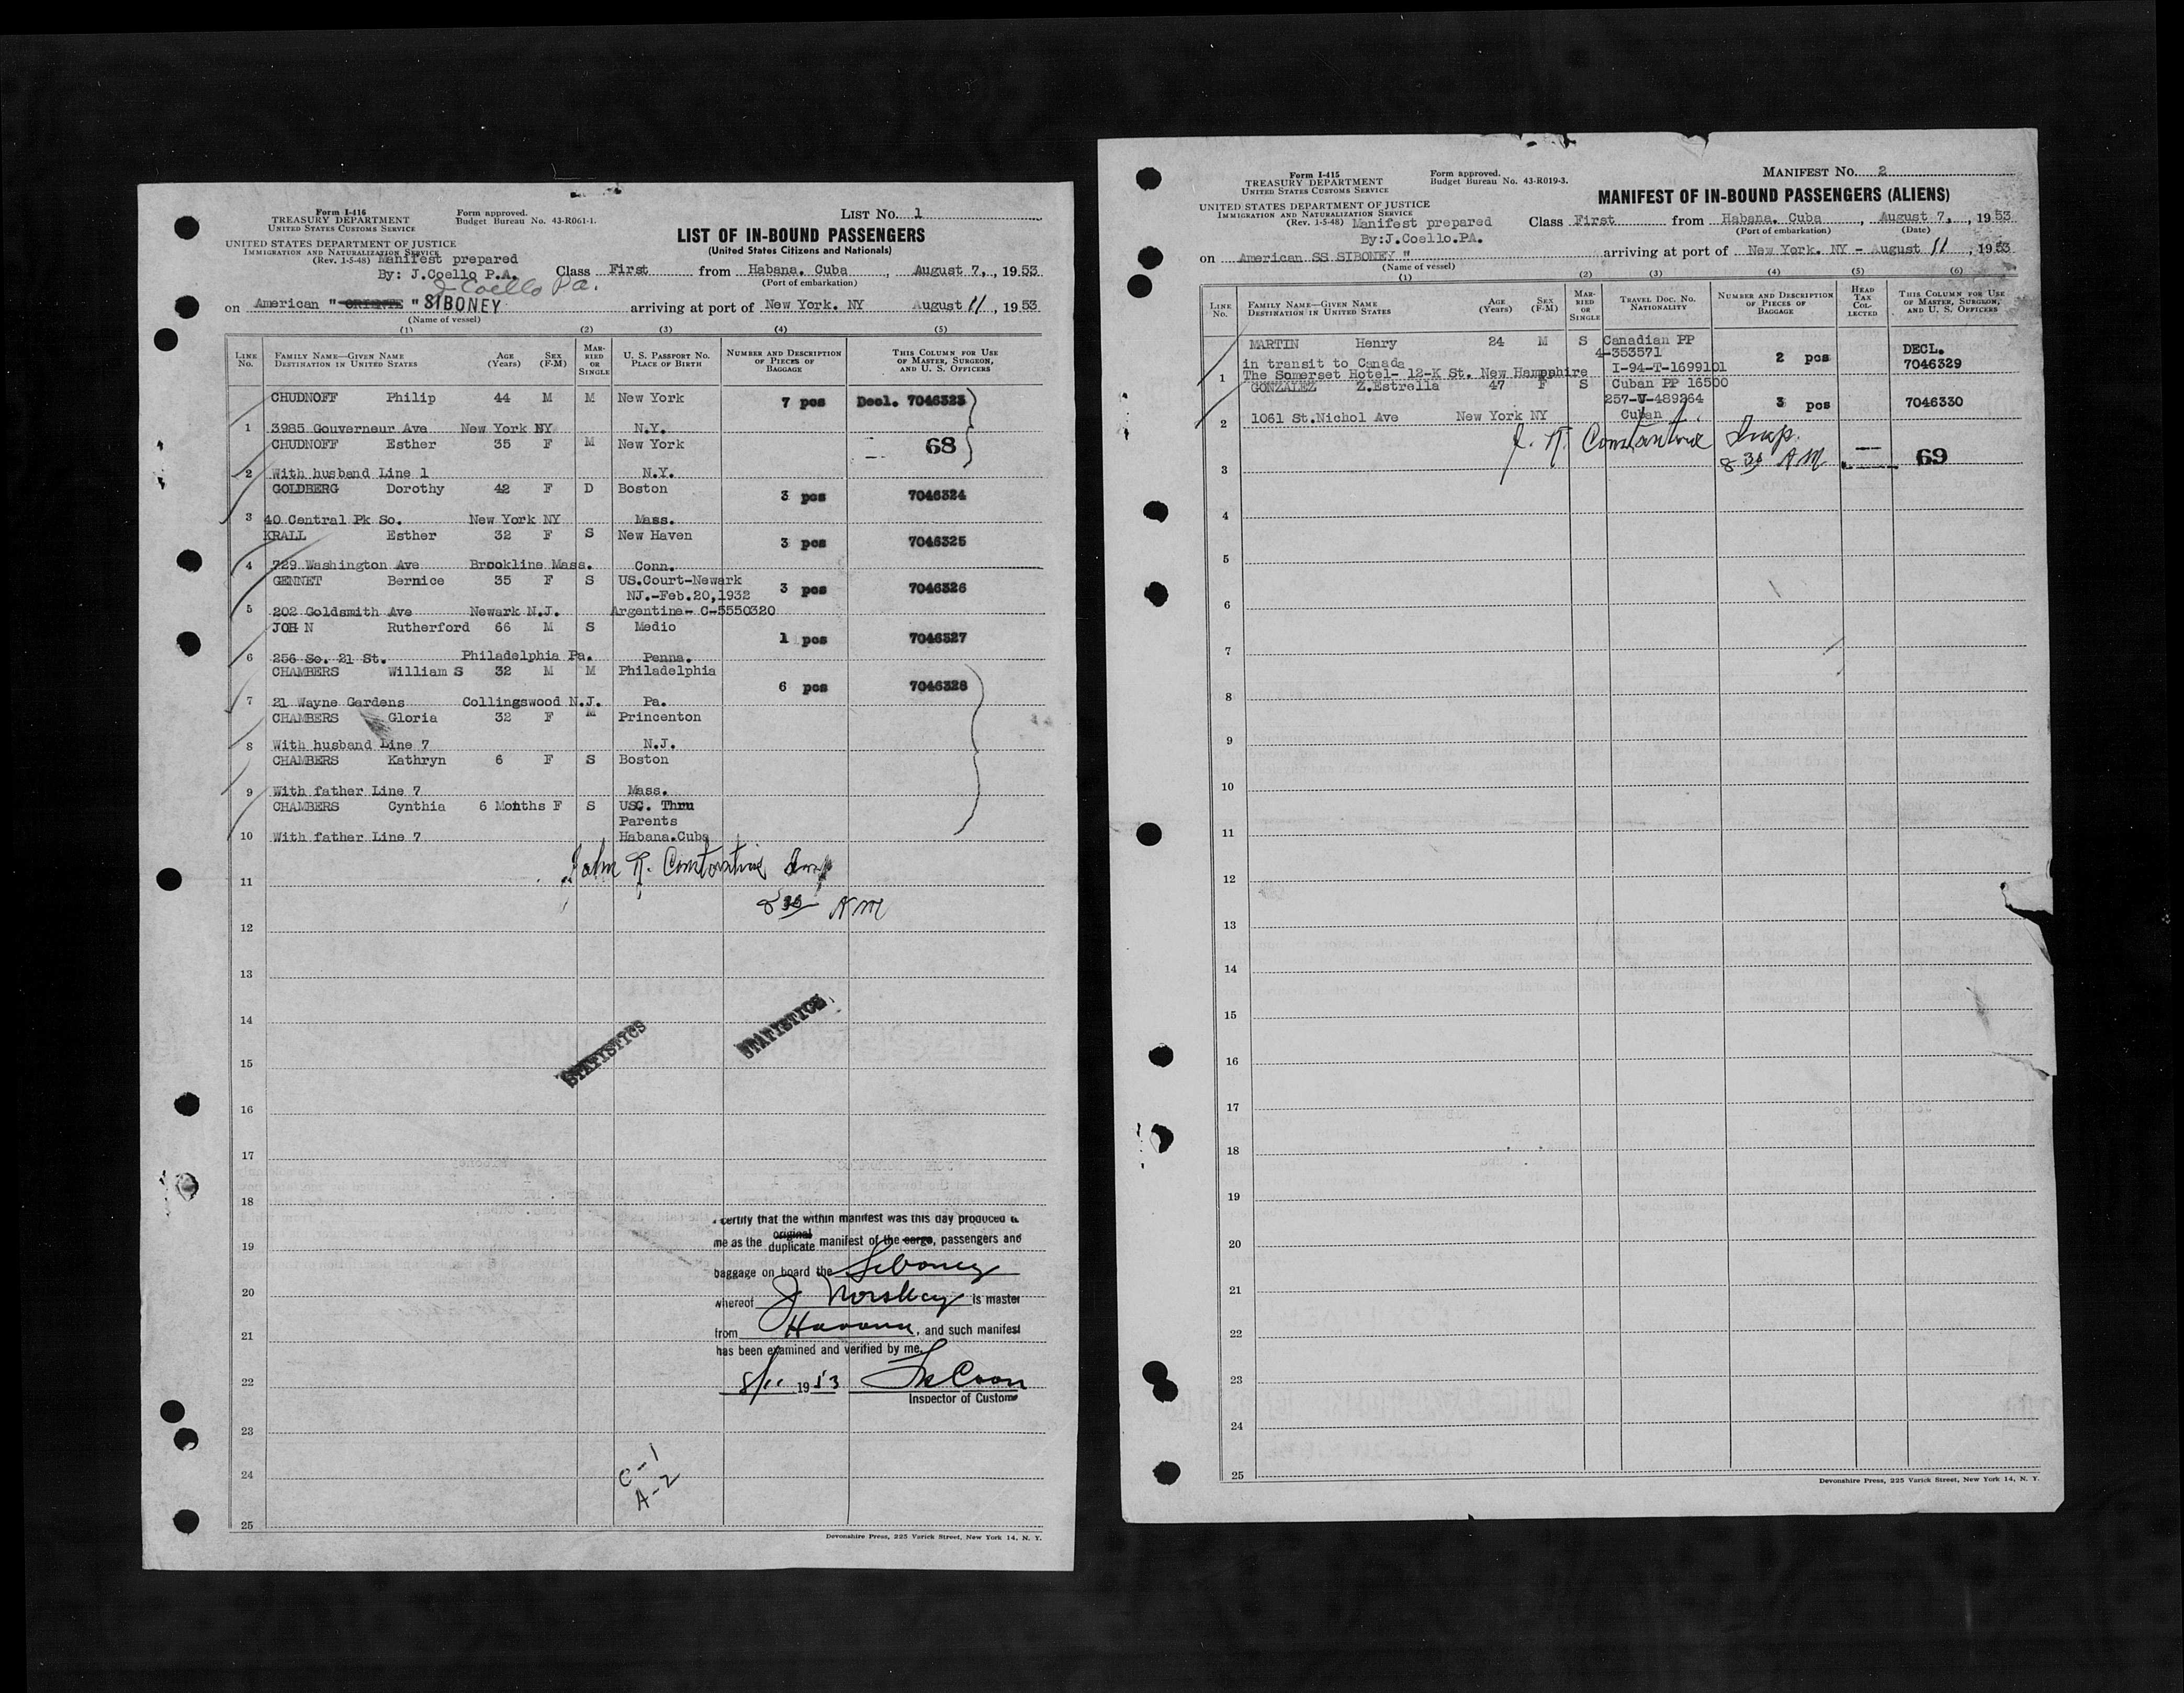 Form I-416
TREASURY DEPARTMENT
UNITED STATES CUSTOMS SERVICE
Form approved.
Budget Bureau No. 43-R061-1.
LIST No. 1
UNITED STATES DEPARTMENT OF JUSTICE
IMMIGRATION AND NATURALIZATION SERVICE
(Rev. 1-5-48) Manifest prepared
By: J.Coello P.A.
J Coello P.a.
LIST OF IN-BOUND PASSENGERS
(United States Citizens and Nationals)
Class First from Habana. Cuba , August 7, , 1953
(Port of embarkation)
on American " ORIENTE " SIBONEY arriving at port of New York. NY August 11 , 1953
(Name of vessel)
(1) (2) (3) (4) (5)
LINE No. FAMILY NAME—GIVEN NAME DESTINATION IN UNITED STATES AGE (Years) SEX (F-M) MARRIED OR SINGLE U. S. PASSPORT No. PLACE OF BIRTH NUMBER AND DESCRIPTION OF PIECES OF BAGGAGE THIS COLUMN FOR USE OF MASTER, SURGEON, AND U. S. OFFICERS
CHUDNOFF Philip 44 M M New York 7 pcs Decl. 7046323
1 3985 Gouverneur Ave New York NY N.Y.
CHUDNOFF Esther 35 F M New York 68
2 With husband Line 1 N.Y.
GOLDBERG Dorothy 42 F D Boston 3 pcs 7046324
3 40 Central Pk So. New York NY Mass.
KRALL Esther 32 F S New Haven 3 pcs 7046325
4 729 Washington Ave Brookline Mass. Conn.
GENNET Bernice 35 F S US.Court-Newark
NJ.-Feb.20,1932 3 pcs 7046326
5 202 Goldsmith Ave Newark N.J. Argentine- C-5550320
JOHN Rutherford 66 M S Medio 1 pcs 7046327
6 256 So. 21 St. Philadelphia Pa. Penna.
CHAMBERS William S 32 M M Philadelphia 6 pcs 7046328
7 21 Wayne Gardens Collingswood N.J. Pa.
CHAMBERS Gloria 32 F M Princenton
8 With husband Line 7 N.J.
CHAMBERS Kathryn 6 F S Boston
9 With father Line 7 Mass.
CHAMBERS Cynthia 6 Months F S USC. Thru
Parents
10 With father Line 7 Habana.Cuba
John R. Constantine Insp
11
8 30 AM
12
13
14
STATISTICS STATISTICS
15
16
17
18
I certify that the within manifest was this day produced to
19 me as the original duplicate manifest of the cargo, passengers and
baggage on board the Siboney
20 whereof J is master
21 from Havana, and such manifest
has been examined and verified by me.
22 8/11 1953
Inspector of Customs
23
24 C-1
A-2
25
Devonshire Press, 225 Varick Street, New York 14, N. Y.
Form I-415
TREASURY DEPARTMENT
UNITED STATES CUSTOMS SERVICE
Form approved.
Budget Bureau No. 43-R019-3.
MANIFEST No. 2
UNITED STATES DEPARTMENT OF JUSTICE
IMMIGRATION AND NATURALIZATION SERVICE
(Rev. 1-5-48) Manifest prepared
By:J.Coello.PA.
MANIFEST OF IN-BOUND PASSENGERS (ALIENS)
Class First from Habana. Cuba , August 7, , 1953
(Port of embarkation) (Date)
on American SS SIBONEY " arriving at port of New York. NY - August 11 , 1953
(Name of vessel)
(1) (2) (3) (4) (5) (6)
LINE No. FAMILY NAME—GIVEN NAME DESTINATION IN UNITED STATES AGE (Years) SEX (F-M) MARRIED OR SINGLE TRAVEL DOC. No. NATIONALITY NUMBER AND DESCRIPTION OF PIECES OF BAGGAGE HEAD TAX COLLECTED THIS COLUMN FOR USE OF MASTER, SURGEON, AND U. S. OFFICERS
MARTIN Henry 24 M S Canadian PP
4-353571 2 pcs DECL.
in transit to Canada I-94-T-1699101 7046329
1 The Somerset Hotel- 12-K St. New Hampshire
GONZALEZ Z.Estrella 47 F S Cuban PP 16500
257-V-489264 3 pcs 7046330
2 1061 St.Nichol Ave New York NY Cuban
J. R. Constantine Insp.
3 8 30 AM 69
4
5
6
7
8
9
10
11
12
13
14
15
16
17
18
19
20
21
22
23
24
25
Devonshire Press, 225 Varick Street, New York 14, N. Y.